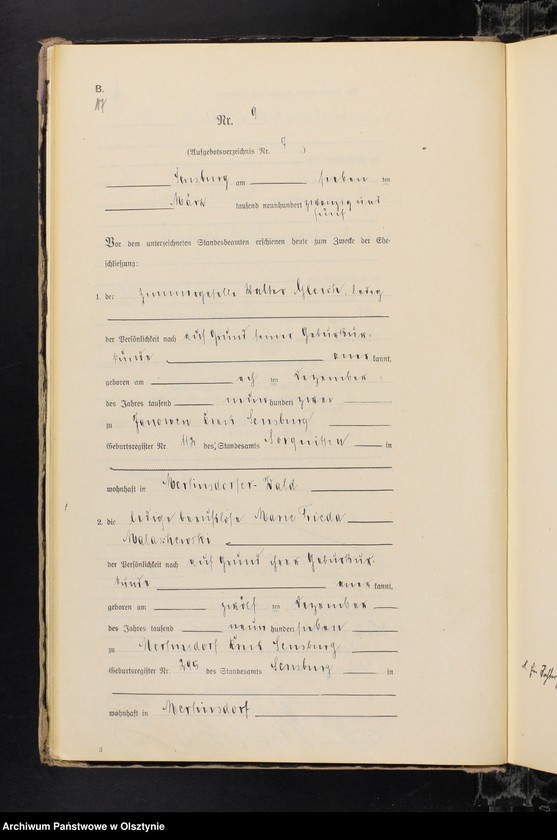 B.
Nr. 9
(Aufgebotsverzeichnis Nr. 7)
Sensburg am sieben ten
März tausend neunhundert zwanzig und
fünf
Vor dem unterzeichneten Standesbeamten erschienen heute zum Zwecke der Ehe-
schließung:
1. der Zimmergeselle Walter, ledig
der Persönlichkeit nach auf Grund seiner Geburtsur-
kunde aner kannt,
geboren am ach ten Dezember
des Jahres tausend neun hundert zwei
zu Janowen Kreis Sensburg
Geburtsregister Nr. 112 des Standesamts Sorquitten in
wohnhaft in Mertinsdorfer-Wald
2. die ledige berufslose Marie Frieda
Malaschewski
der Persönlichkeit nach auf Grund ihrer Geburtsur-
kunde aner kannt,
geboren am zwölf ten Dezember
des Jahres tausend neun hundert sieben
zu Mertinsdorf Kreis Sensburg
Geburtsregister Nr. 295 des Standesamts Sensburg in
wohnhaft in Mertinsdorf
3
Archiwum Państwowe w Olsztynie